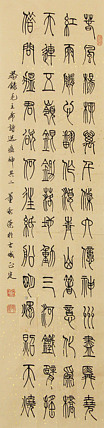 春風楊柳萬千條六億神州盡舜堯
紅雨隨心翻作浪青山着意化為橋
天連五嶺銀鋤落地動三河鐵臂搖
借問瘟君欲何往紙船明燭照天燒
恭錄毛主席詩送瘟神其二